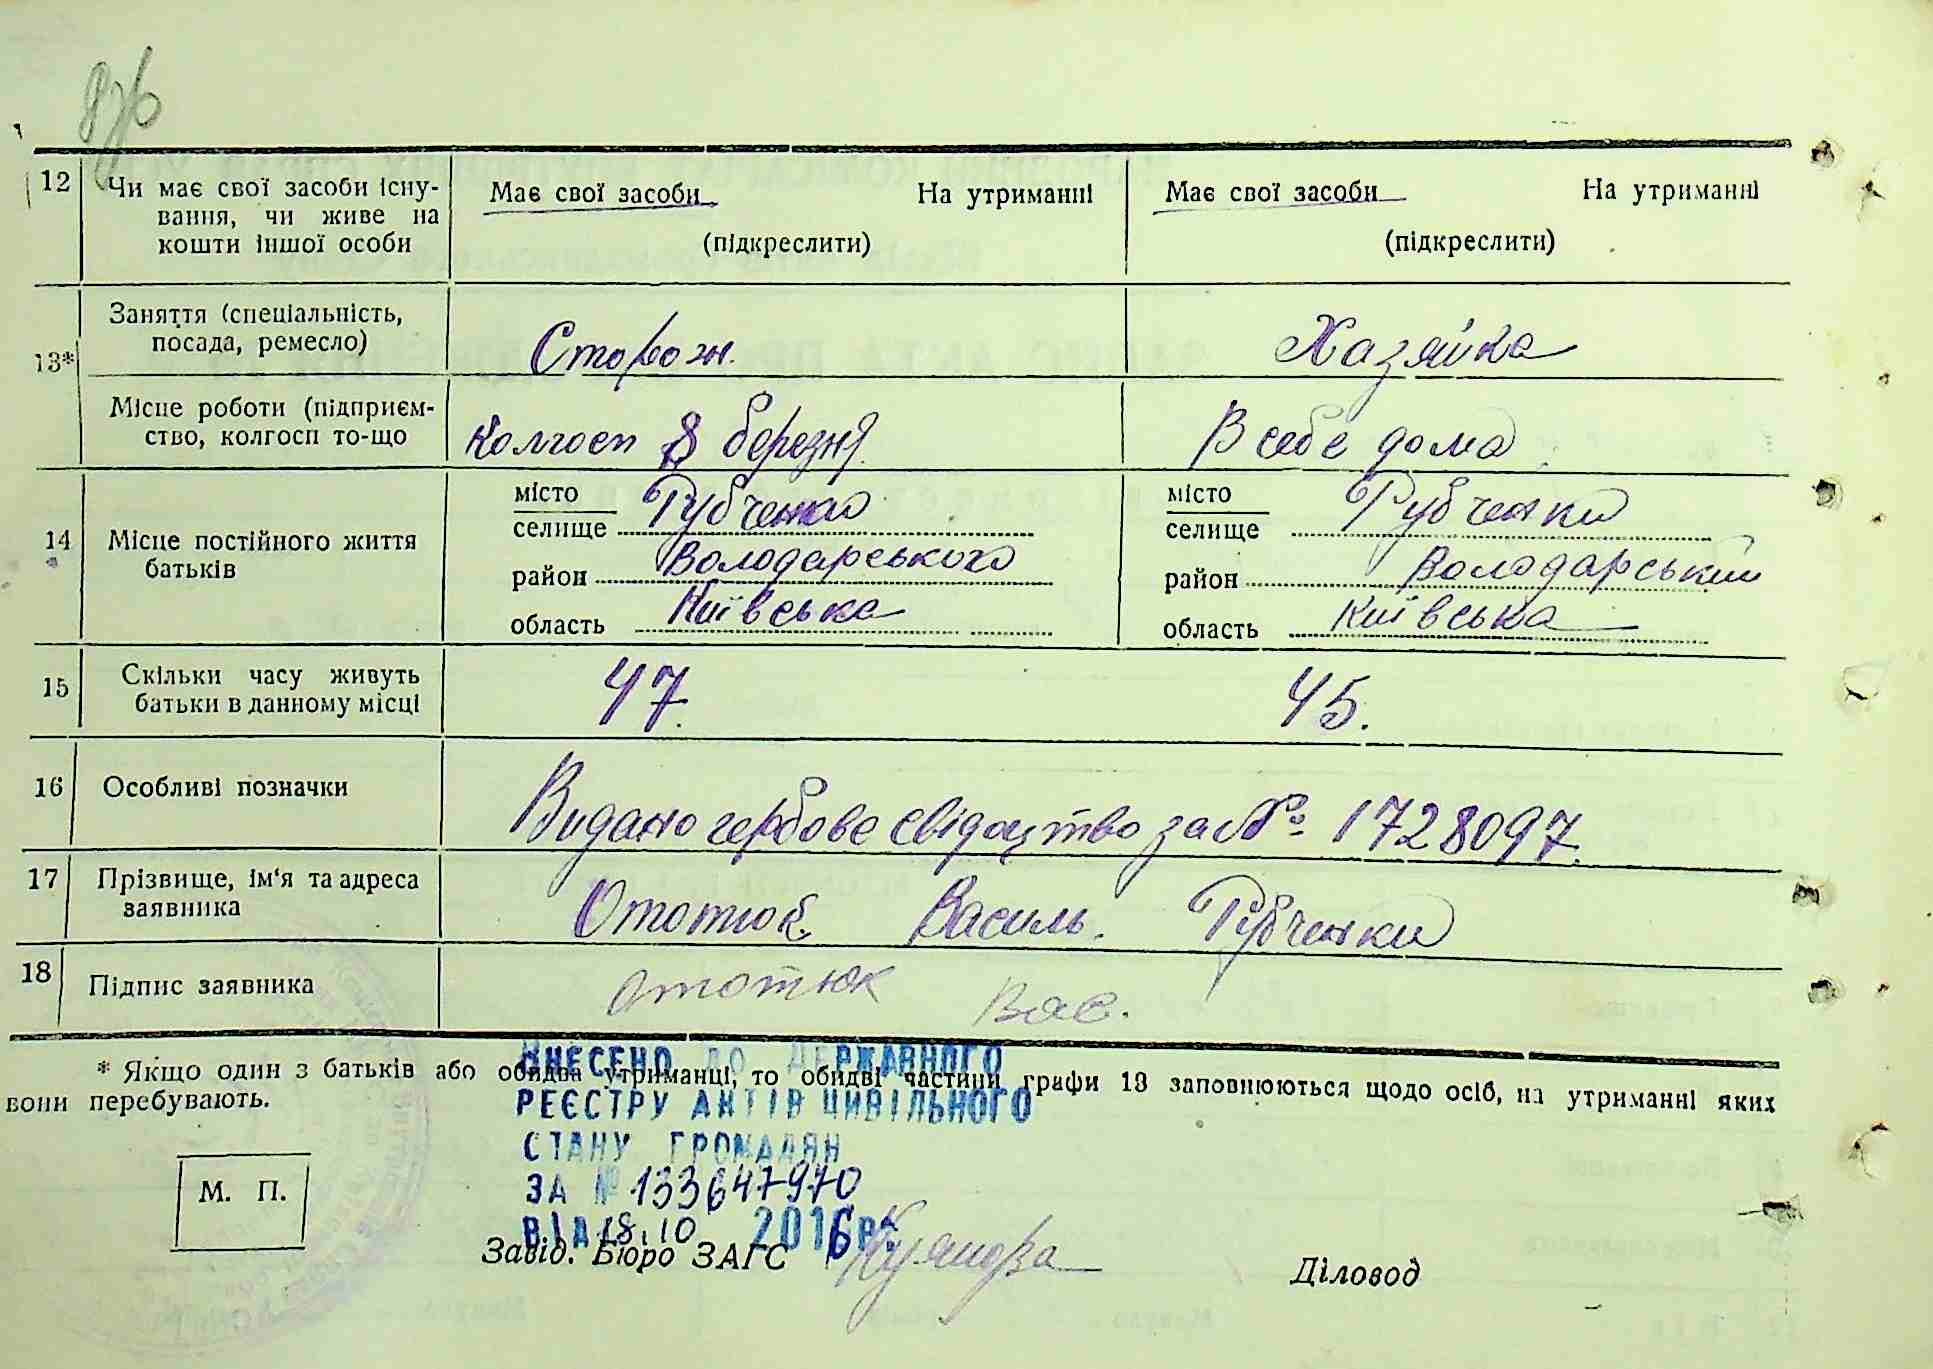 12 Чи має свої засоби існу-
вання, чи живе на
кошти іншої особи
Має свої засоби На утриманні
(підкреслити)
Має свої засоби На утриманні
(підкреслити)
13*
Заняття (спеціальність,
посада, ремесло)
Сторож.
Хазяйка
Місце роботи (підприєм-
ство, колгосп то-що
Колгосп 8 березня
В себе дома
14 Місце постійного життя
батьків
місто
селище Рубченки
район Володарського
область Київська
місто
селище Рубченки
район Володарський
область Київська
15 Скільки часу живуть
батьки в данному місці
47.
45.
16 Особливі позначки
Видано гербове свідоцтво за № 1728097.
17 Прізвище, ім'я та адреса
заявника
Ототюк Василь. Рубченки
18 Підпис заявника
Ототюк Вас.
* Якщо один з батьків або обидва утриманці, то обидві частини графи 13 заповнюються щодо осіб, на утриманні яких
вони перебувають.
ВНЕСЕНО ДО ДЕРЖАВНОГО
РЕЄСТРУ АКТІВ ЦИВІЛЬНОГО
СТАНУ ГРОМАДЯН
ЗА № 133647970
ВІД 18.10 2016р.
М. П.
Завід. Бюро ЗАГС
Діловод